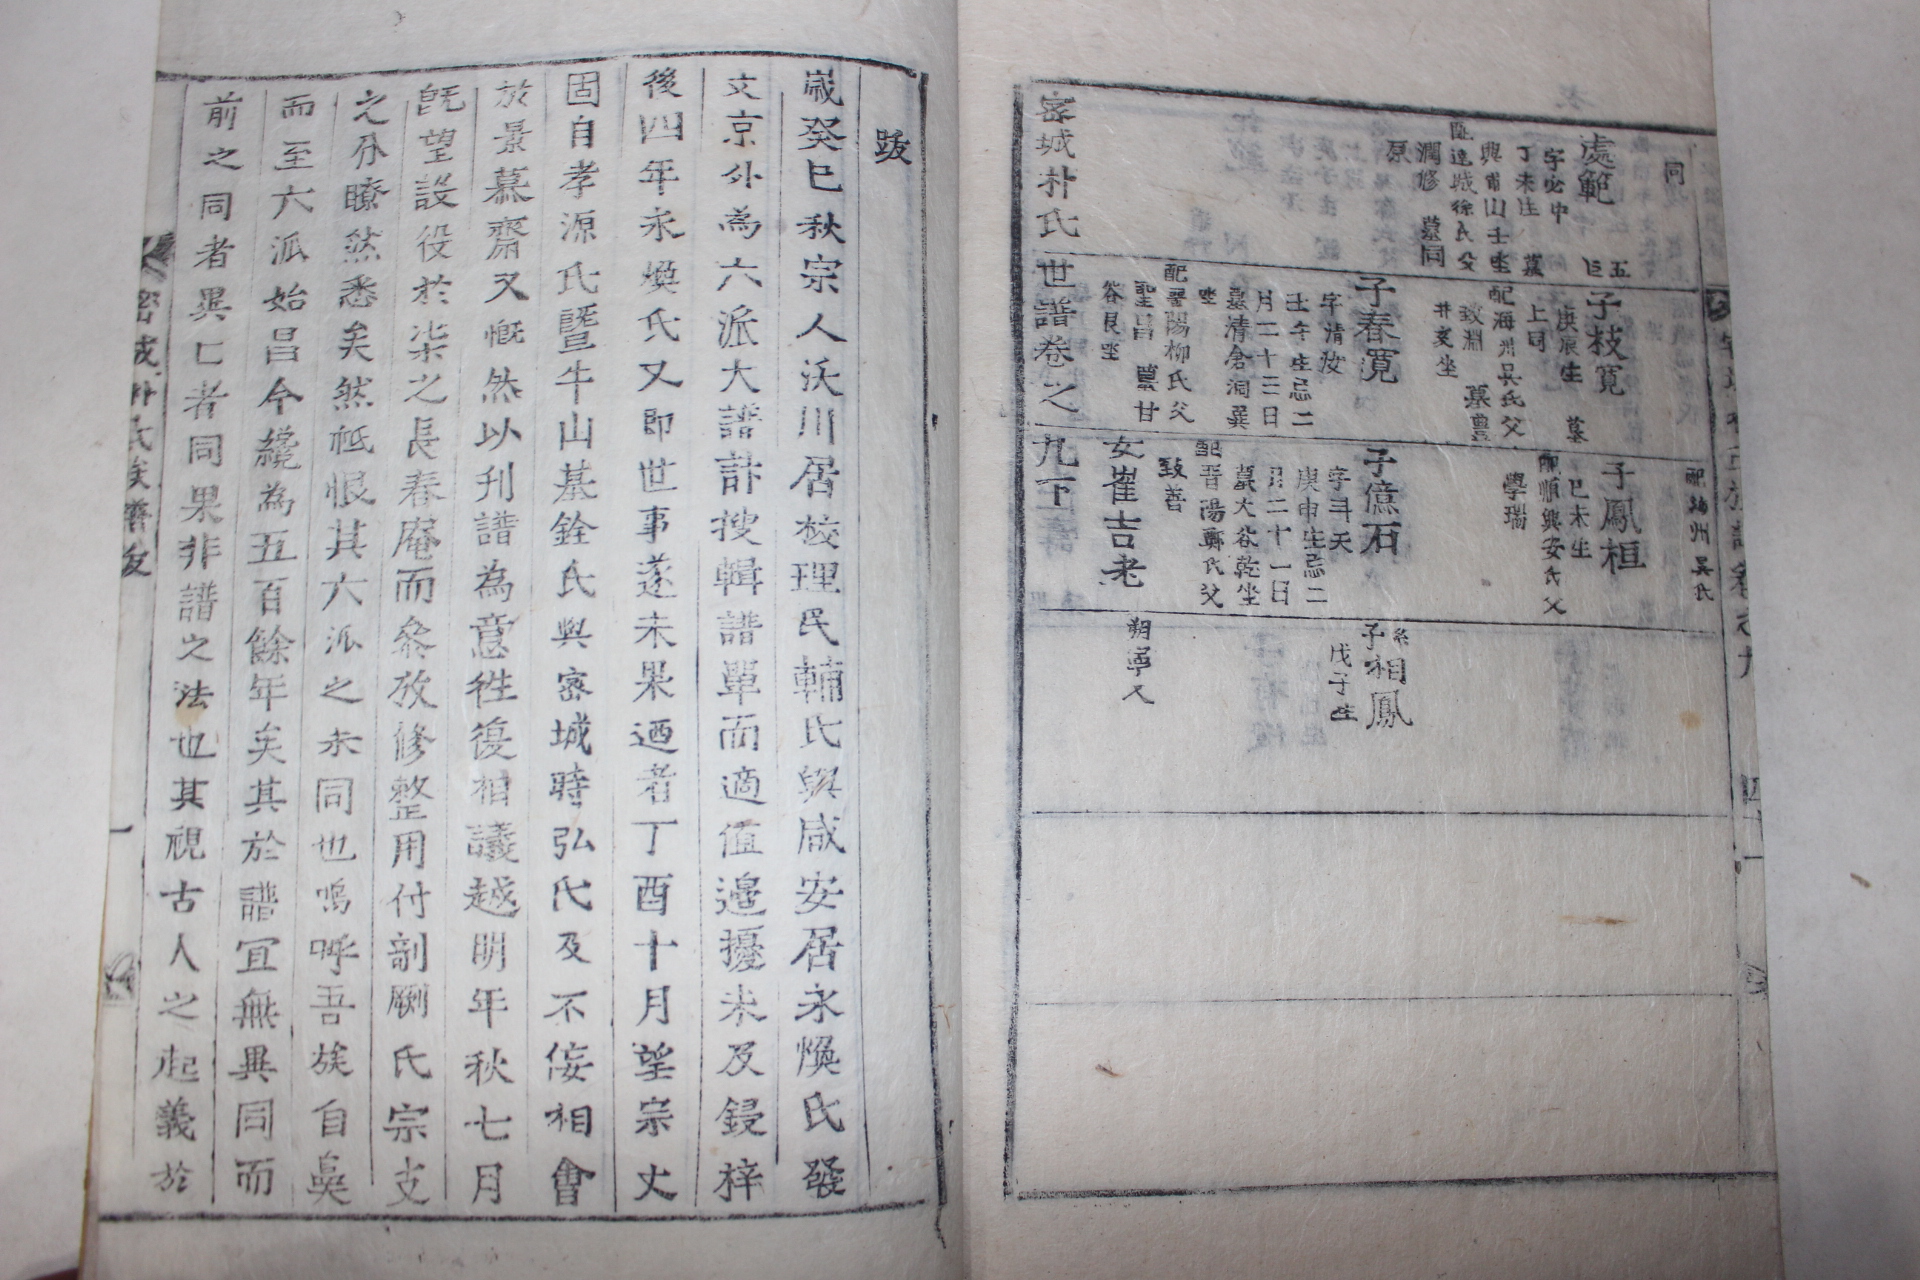 同
處範
五
巨
字必中
丁未生 墓
與甫山壬坐
配達城徐氏父
潤修 墓同
原
子枝寬
庚辰生 墓
上同
配海州吳氏父
致淵 墓豊
井亥坐
子春寬
字清汝
壬午生忌二
月二十三日
墓清倉洞巽
坐
配晋陽柳氏父
聖昌 墓甘
谷艮坐
配海州吳氏
子鳳桓
己未生
配順興安氏父
學瑞
子億石
字斗天
庚申生忌二
月二十一日
墓大谷乾坐
配晋陽鄭氏父
致善
女崔吉老
朔寧人
系
子相鳳
戊子生
密城朴氏世譜卷之九下
跋
歲癸巳秋宗人沃川居校理民輔氏與咸安居永煥氏發
文京外為六派大譜計搜輯譜單而適值邊擾未及鋟梓
後四年永煥氏又即世事遂未果迺者丁酉十月望宗丈
固自孝源氏曁牛山基銓氏與密城時弘氏及不侫相會
於景慕齋又慨然以刊譜為意徃復相議越明年秋七月
旣望設役於柒之長春庵而叅放修整用付剖劂氏宗支
之分瞭然悉矣然秪恨其六派之未同也嗚呼吾族自奠
而至六派始昌今纔為五百餘年矣其於譜宜無異同而
前之同者異亡者同果非譜之法也其視古人之起義於
密城朴氏族譜跋
一